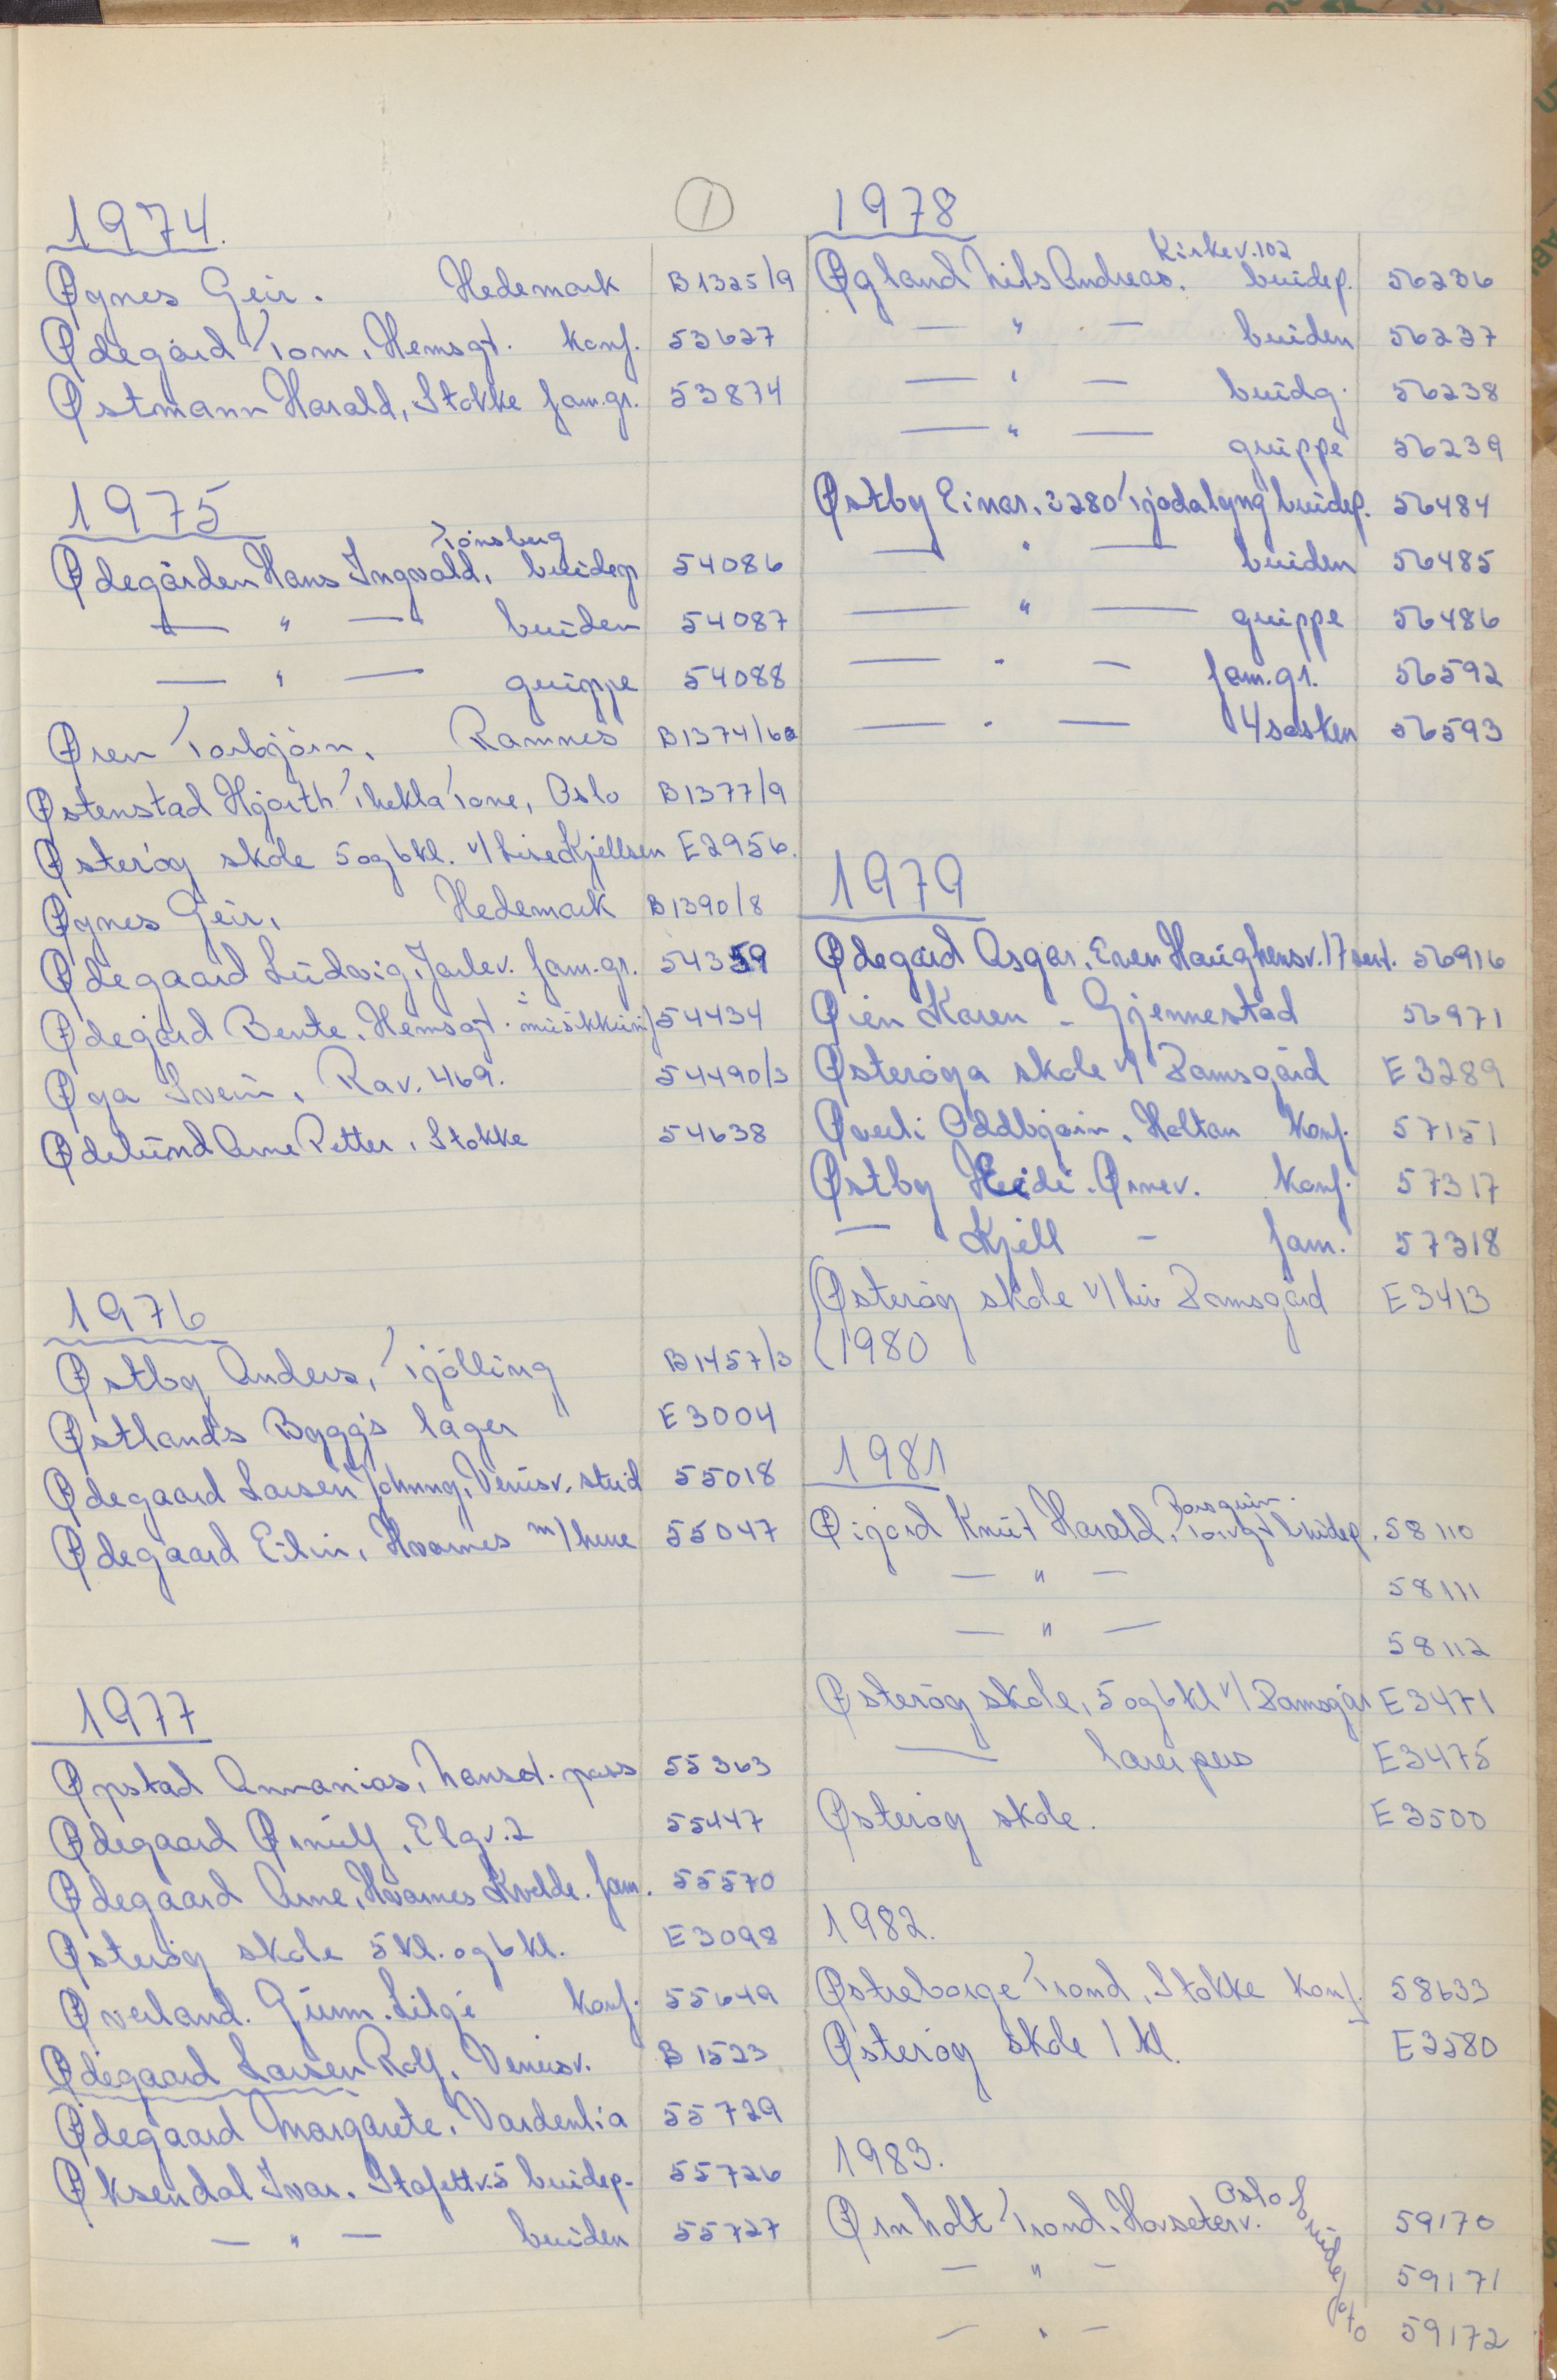 1
1974.
Øynes Geir. Hedemark B1325/9
Ødegård Tom, Hemsgt. konf. 53627
Østmann Harald, Stokke fam.gr. 53874
1975
Tönsberg
Ødegården Hans Ingvald, brudep 54086
— " — bruden 54087
— " — gruppe 54088
Øren Torbjörn, Ramnes B1374/6a
Østenstad Hjorth Thekla Tone, Oslo B1377/9
Østeröy skole 5 og 6 kl. v/ Lise Kjellsen E2956.
Øynes Geir, Hedemark B1390/8
Ødegaard Ludvig, Jarlev. fam.gr. 54359
Ødegård Bente, Hemsgt. i musikkunif 54434
Øya Svein, Rav. 469. 54490/3
Ødelund Arne Petter, Stokke 54638
1976
Østby Anders, Tjölling B1457/3
Østlands Bygg's lager E3004
Ødegaard Larsen Johnny, Venusv. stud 55018
Ødegaard Elin, Hvarnes m/ huue 55047
1977
Øpstad Annanias, Nanset. pass 55363
Ødegaard Ørnulf, Elgv. 2 55447
Ødegaard Arne, Hvarnes Kvelde. fam. 55570
Østeröy skole 5 kl. og 6 kl. E3098
Øverland. Gunn. Lilgi konf. 55649
Ødegaard Larsen Rolf, Venusv. B 1523
Ødegaard Margarete, Vardenlia 55729
Øksendal Ivar. Stafettv.5 brudep. 55726
— " — bruden 55727
1978
Kirkev. 102
Øgland Nils Andreas. brudep. 56236
— " — bruden 56237
— " — brudg. 56238
— " — gruppe 56239
Østby Einar, 3280 Tjodalyng brudep. 56484
— " — bruden 56485
— " — gruppe 56486
— " — fam.gr. 56592
— " — 4 søsken 56593
1979
Ødegård Asgar, Even Haughensv. 17 sert. 56916
Øien Karen - Gjennestad 56971
Østeröya skole v/ Ramsgård E3289
Øverli Oddbjörn, Holtan konf. 57151
Østby Heidi. Ørnev. konf. 57317
— Kjell — fam. 57318
Østeröy skole v/ Liv Ramsgård E3413
1980
1981
Porsgrunn.
Øigard Knut Harald, Torvgt brudep. 58110
— " — 58111
— " — 58112
Østeröy skole, 5 og 6 kl v/ Ramsgår E3471
— E3475
Østeröy skole. E3500
1982.
Østreborge Trond, Stokke konf. 58633
Østeröy skole 1 kl. E3580
1983.
Oslo brudefoto
Ørnholt Trond. Hovseterv. 59170
— " — 59171
— " — 59172